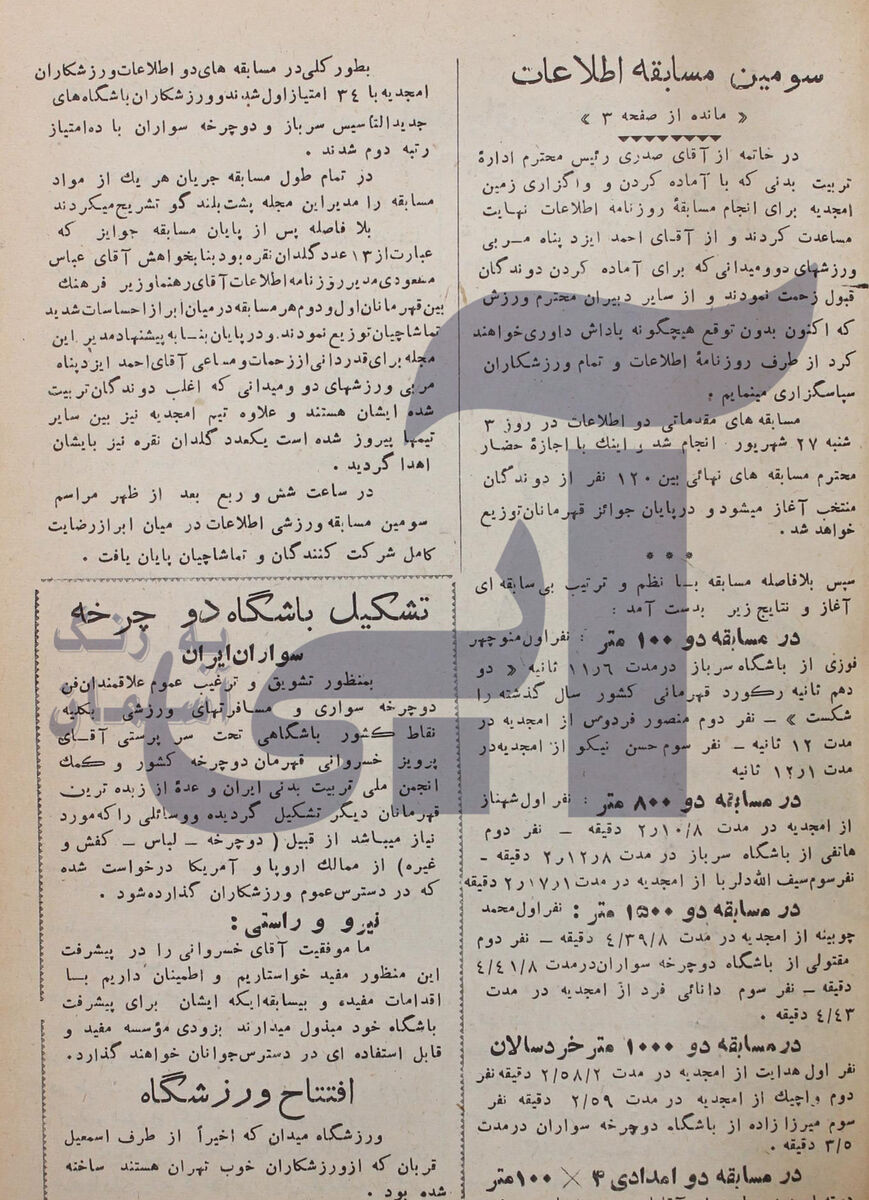 سومین مسابقه اطلاعات
« مانده از صفحه ۳ »
در خاتمه از آقای صدری رئیس محترم ادارهٔ
تربیت بدنی که با آماده کردن و واگزاری زمین
امجدیه برای انجام مسابقهٔ روزنامه اطلاعات نهایت
مساعدت کردند و از آقای احمد ایزد پناه مربی
ورزشهای دوومیدانی که برای آماده کردن دوندگان
قبول زحمت نمودند و از سایر دبیران محترم ورزش
که اکنون بدون توقع هیچگونه پاداش داوری خواهند
کرد از طرف روزنامهٔ اطلاعات و تمام ورزشکاران
سپاسگزاری مینمایم .
مسابقه های مقدماتی دو اطلاعات در روز ۳
شنبه ۲۷ شهریور انجام شد و اینك با اجازهٔ حضار
محترم مسابقه های نهائی بین ۱۲۰ نفر از دوندگان
منتخب آغاز میشود و در پایان جوائز قهرمانان توزیع
خواهد شد .
* * *
سپس بلافاصله مسابقه با نظم و ترتیب بی سابقه ای
آغاز و نتایج زیر بدست آمد :
در مسابقه دو ۱۰۰ متر : نفر اول منوچهر
فوزی از باشگاه سرباز درمدت ۱۱٫۶ ثانیه « دو
دهم ثانیه رکورد قهرمانی کشور سال گذشته را
شکست » ـ نفر دوم منصور فردوس از امجدیه در
مدت ۱۲ ثانیه ـ نفر سوم حسن نیکو از امجدیه در
مدت ۱۲٫۱ ثانیه
در مسابقه دو ۸۰۰ متر : نفر اول شهناز
از امجدیه در مدت ۲٫۱۰/۸ دقیقه ـ نفر دوم
هاتفی از باشگاه سرباز در مدت ۲٫۱۲٫۸ دقیقه ـ
نفر سوم سیف الله دلربا از امجدیه در مدت ۲٫۱۷٫۱ دقیقه
در مسابقه دو ۱۵۰۰ متر : نفر اول محمد
چوبینه از امجدیه در مدت ۴/۳۹/۸ دقیقه ـ نفر دوم
مقتولی از باشگاه دوچرخه سواران درمدت ۴/۴۱/۸
دقیقه ـ نفر سوم دانائی فرد از امجدیه در مدت
۴/۴۳ دقیقه .
در مسابقه دو ۱۰۰۰ متر خردسالان
نفر اول هدایت از امجدیه در مدت ۲/۵۸/۲ دقیقه نفر
دوم واچیك از امجدیه در مدت ۲/۵۹ دقیقه نفر
سوم میرزا زاده از باشگاه دوچرخه سواران درمدت
۳/۵ دقیقه .
در مسابقه دو امدادی ۴ × ۱۰۰ متر
بطور کلی در مسابقه های دو اطلاعات ورزشکاران
امجدیه با ۳۴ امتیاز اول شدند و ورزشکاران باشگاه های
جدیدالتاسیس سرباز و دوچرخه سواران با ده امتیاز
رتبه دوم شدند .
در تمام طول مسابقه جریان هر یك از مواد
مسابقه را مدیر این مجله پشت بلند گو تشریح میکردند
بلا فاصله پس از پایان مسابقه جوایز که
عبارت از ۱۳ عدد گلدان نقره بود بنا بخواهش آقای عباس
مسعودی مدیر روزنامه اطلاعات آقای رهنما وزیر فرهنگ
بین قهرمانان اول و دوم هر مسابقه در میان ابراز احساسات شدید
تماشاچیان توزیع نمودند. و در پایان بنا به پیشنهاد مدیر این
مجله برای قدردانی از زحمات و مساعی آقای احمد ایزد پناه
مربی ورزشهای دو ومیدانی که اغلب دوندگان تربیت
شده ایشان هستند و علاوه تیم امجدیه نیز بین سایر
تیمها پیروز شده است یکعدد گلدان نقره نیز بایشان
اهدا گردید .
در ساعت شش و ربع بعد از ظهر مراسم
سومین مسابقه ورزشی اطلاعات در میان ابراز رضایت
کامل شرکت کنندگان و تماشاچیان پایان یافت .
تشکیل باشگاه دو چرخه
سواران ایران
بمنظور تشویق و ترغیب عموم علاقمندان فن
دوچرخه سواری و مسافرتهای ورزشی بکلیه
نقاط کشور باشگاهی تحت سر پرستی آقای
پرویز خسروانی قهرمان دوچرخه کشور و کمك
انجمن ملی تربیت بدنی ایران و عدهٔ از زبده ترین
قهرمانان دیگر تشکیل گردیده و وسائلی را که مورد
نیاز میباشد از قبیل ( دوچرخه ـ لباس ـ کفش و
غیره) از ممالك اروپا و آمریکا درخواست شده
که در دسترس عموم ورزشکاران گذارده شود .
نیرو و راستی :
ما موفقیت آقای خسروانی را در پیشرفت
این منظور مفید خواستاریم و اطمینان داریم با
اقدامات مفید و بیسابقه ایکه ایشان برای پیشرفت
باشگاه خود مبذول میدارند بزودی مؤسسه مفید و
قابل استفاده ای در دسترس جوانان خواهند گذارد.
افتتاح ورزشگاه
ورزشگاه میدان که اخیراً از طرف اسمعیل
قربان که از ورزشکاران خوب تهران هستند ساخته
شده بود .
آبی
به رنگ
آسمان